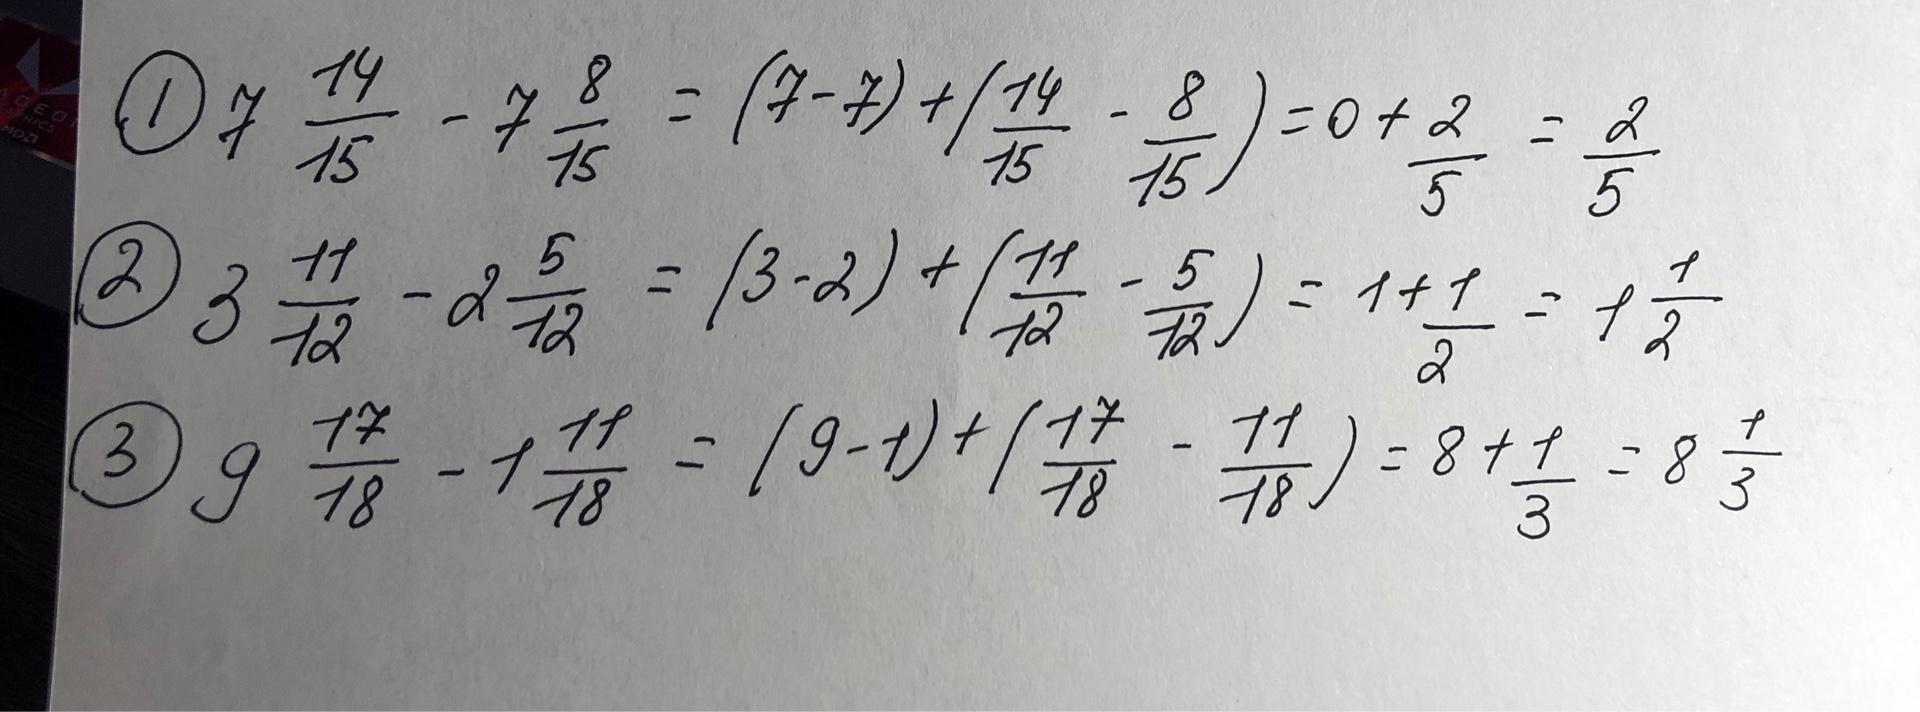 ① 7 14/15 - 7 8/15 = (7-7) + (14/15 - 8/15) = 0 + 2/5 = 2/5
② 3 11/12 - 2 5/12 = (3-2) + (11/12 - 5/12) = 1 + 1/2 = 1 1/2
③ 9 17/18 - 1 11/18 = (9-1) + (17/18 - 11/18) = 8 + 1/3 = 8 1/3